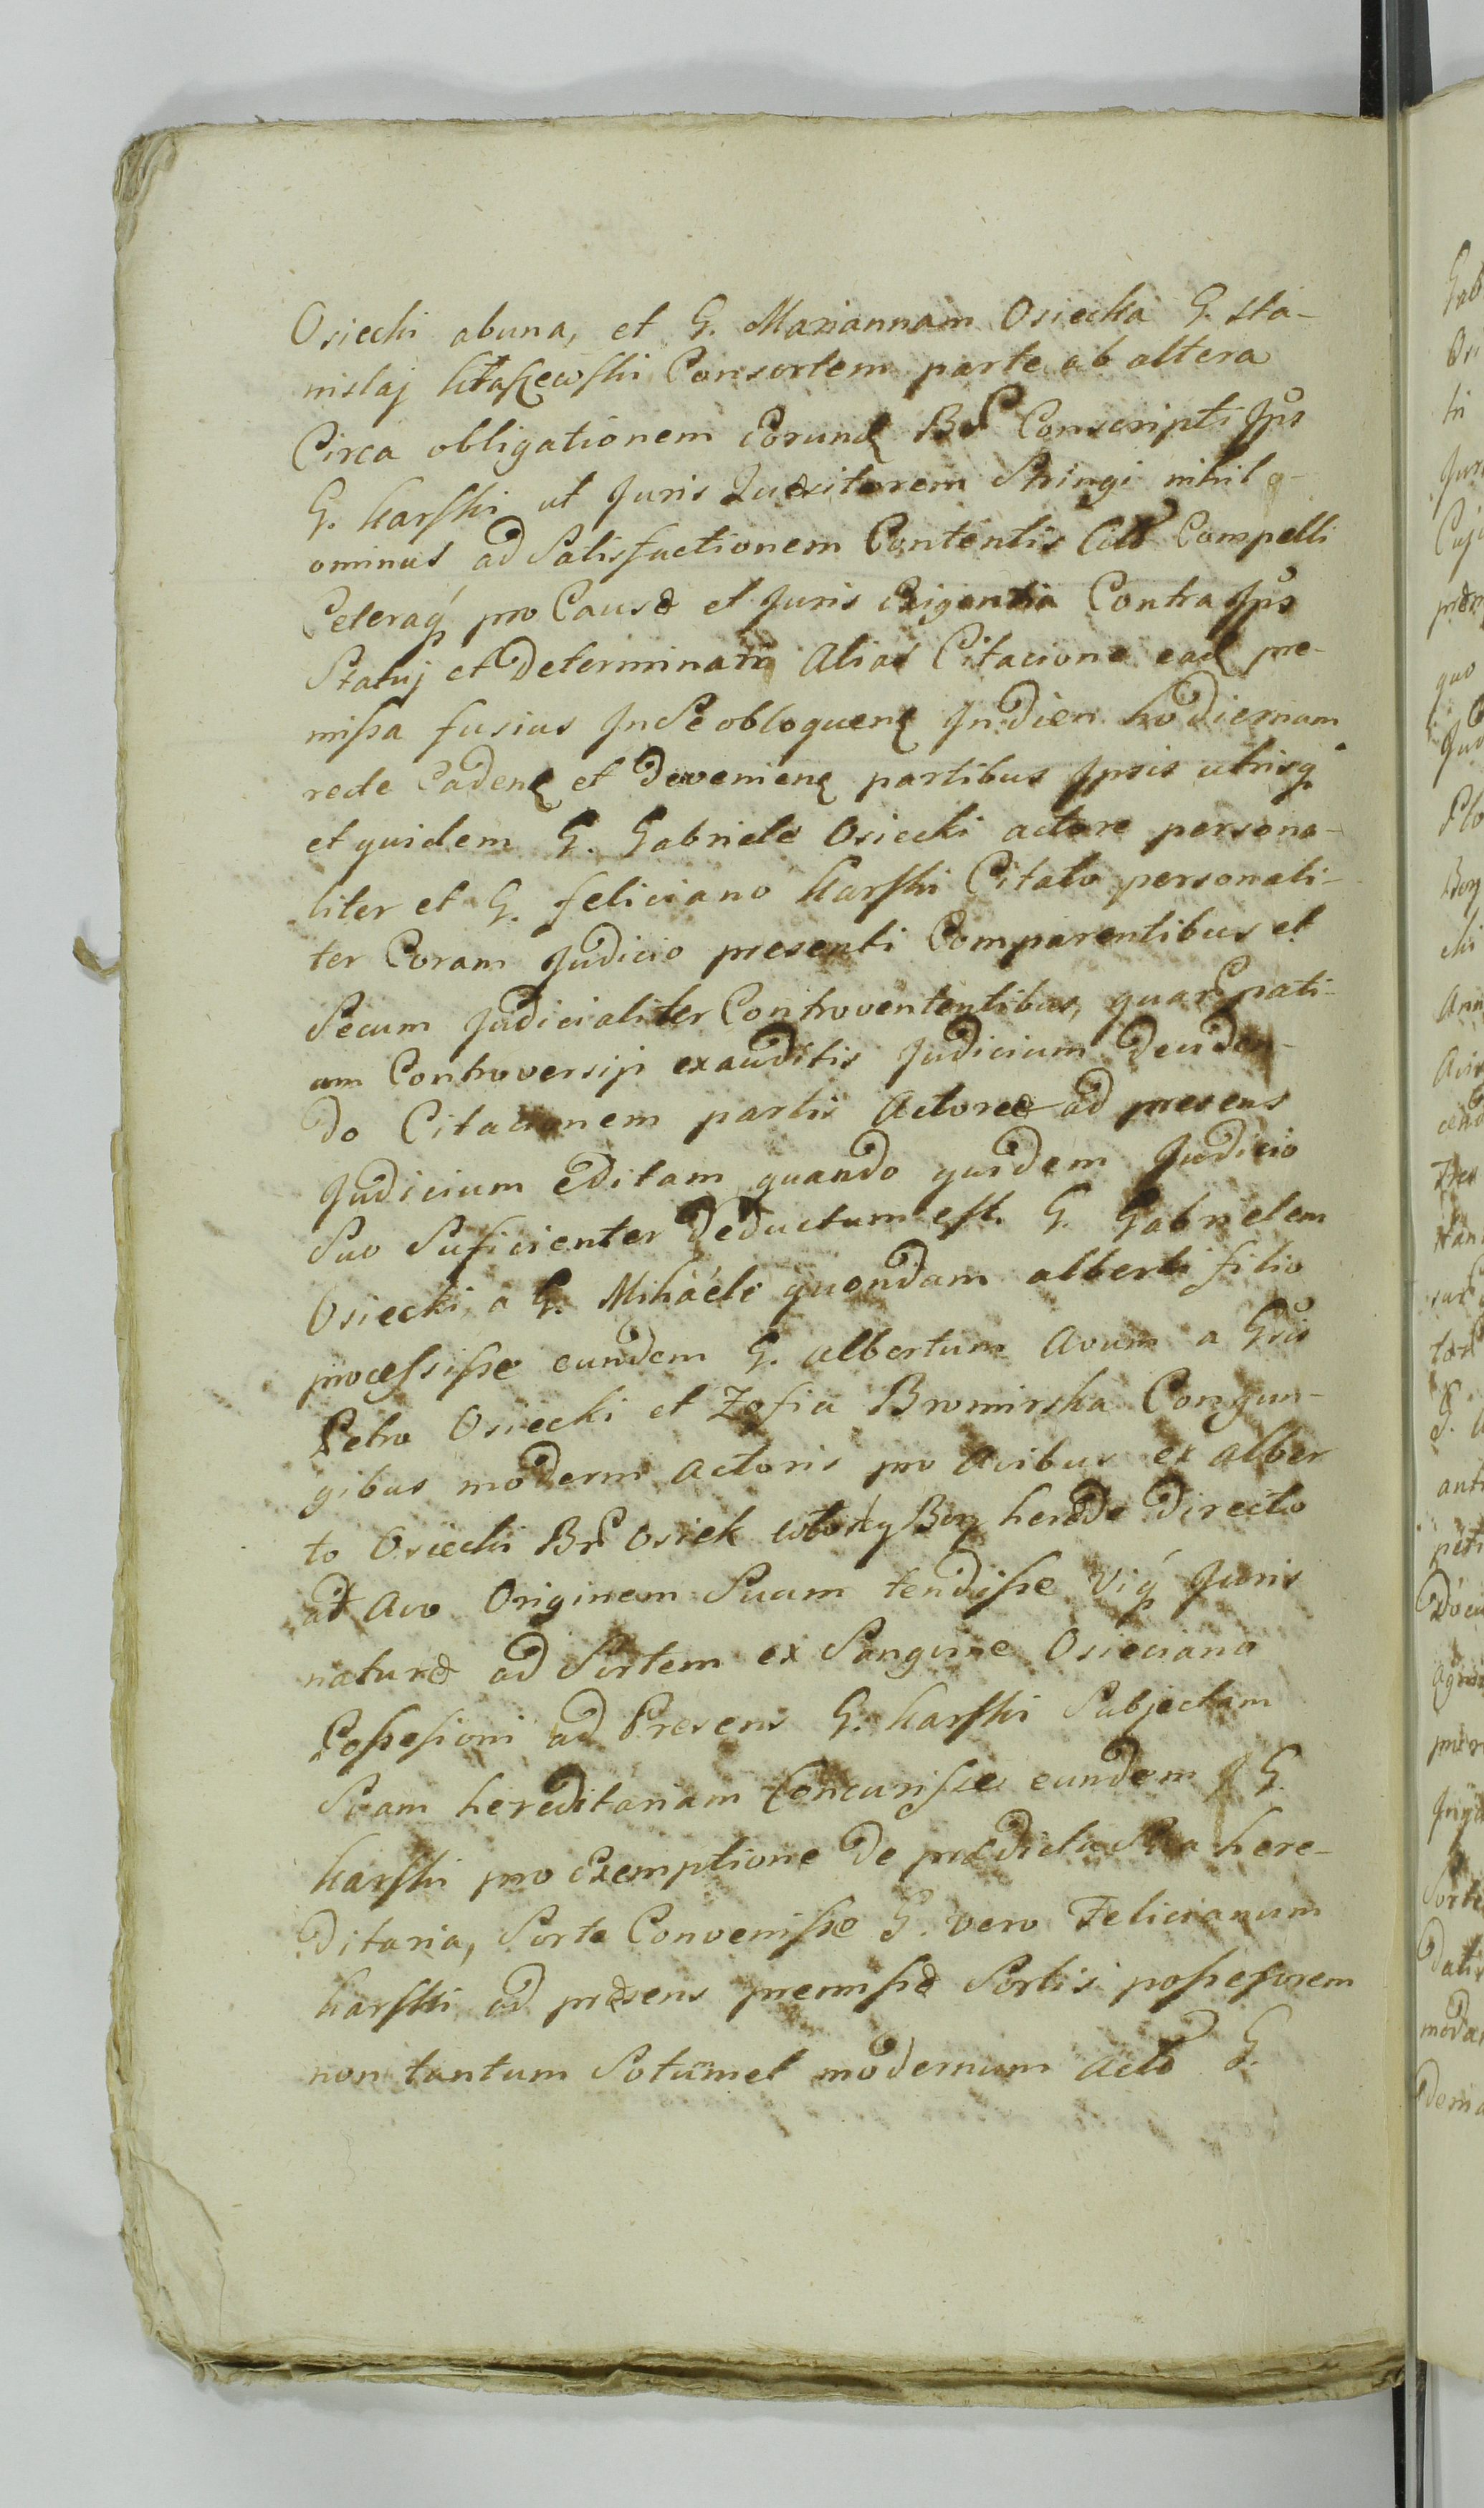 Osiecki abuna, et G. Mariannam Osiecka G. Sta-
nislaj Consortem parte ab altera
Circa obligationem Eorund Br Conscripti Jps
G. Karski ut Juris Quæsitorem Stringi nihil o-
ominus ad Satisfactionem Contentis Compelli
Ceteraq pro Causæ et Juris Exigentia Contra Jps
Statuj et Determinari alias Citacione ead pre-
missa fusius In Se obloquen In dien hodiernam
recte Caden et devenien partibus Ipsis utrisq
et quidem G. Gabriele Osiecki actore persona-
liter et G. feliciano Karski Citato personali-
ter Coram Judicio presenti Comparentibus et
Secum Judicialiter Controvententibus, quar pati-
um Controversiji exauditis Judicium Deciden-
do Citacionem partis Actoreæ ad presens
Judicium Editam quando quidem Judicio
Suo Suficienter Deductum est. G. Gabrielem
Osiecki, a G. Mihaéle quondam alberti filio
processisse eundem G. albertum avum a Gsis
Petro Osiecki et Zofia Bromirska Conjun-
gibus moderni actoris pro avibus ex alber
to Osiecki Br Osiek herede directo
ad avo Originem Suam tendisse viq Juris
naturæ ad Sortem ex Sangvine Osieciano
Possesioni ad Presens G. Karski Subjectam
Suam hereditariam Concurisse eundem G.
Karski pro Exemptione de prædicta Sua here-
ditaria, Sorte Convenisse G. vero Felicianum
Karski ad præsens premissæ Sortis possesorem
non tantum modernum Acto G.